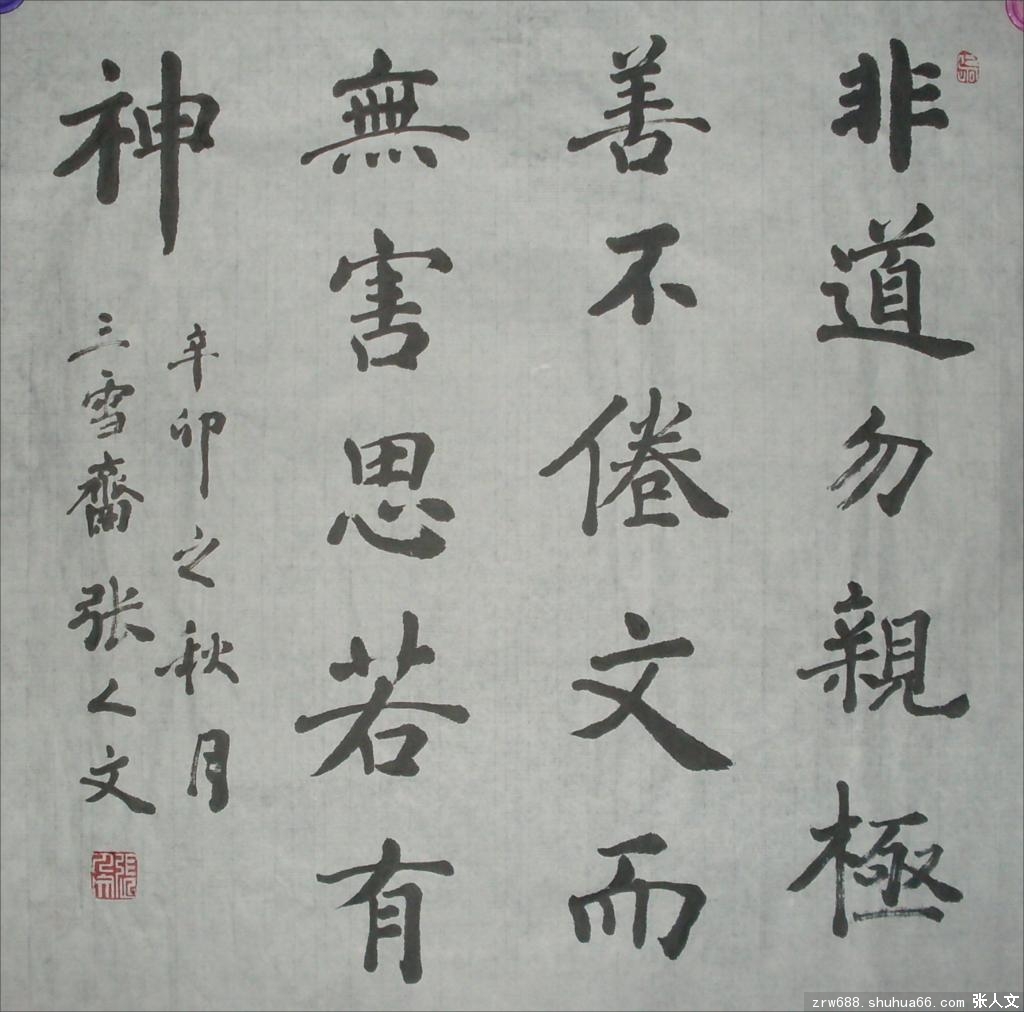 非道勿親極
善不倦文而
無害思若有
神
辛卯之秋月
三雪齋张人文
zrw688.shuhua66.com 张人文